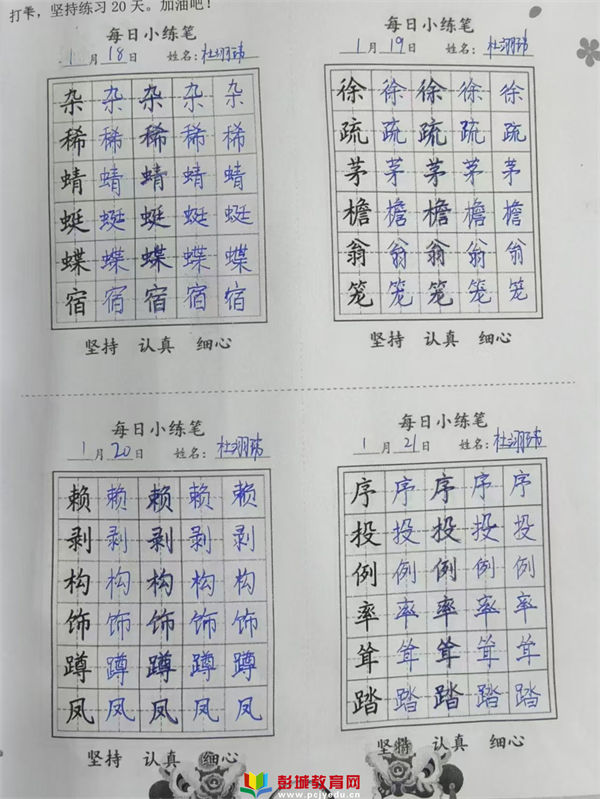 打卡，坚持练习20天。加油吧！
每日小练笔
1月18日 姓名：杜翊玮
杂杂杂杂杂
稀稀稀稀稀
蜻蜻蜻蜻蜻
蜓蜓蜓蜓蜓
蝶蝶蝶蝶蝶
宿宿宿宿宿
坚持 认真 细心
每日小练笔
1月19日 姓名：杜翊玮
徐徐徐徐徐
疏疏疏疏疏
茅茅茅茅茅
檐檐檐檐檐
翁翁翁翁翁
笼笼笼笼笼
坚持 认真 细心
每日小练笔
1月20日 姓名：杜翊玮
赖赖赖赖赖
剥剥剥剥剥
构构构构构
饰饰饰饰饰
蹲蹲蹲蹲蹲
凤凤凤凤凤
坚持 认真 细心
每日小练笔
1月21日 姓名：杜翊玮
序序序序序
投投投投投
例例例例例
率率率率率
耸耸耸耸耸
踏踏踏踏踏
坚持 认真 细心
彭城教育网
www.pcjyedu.cn